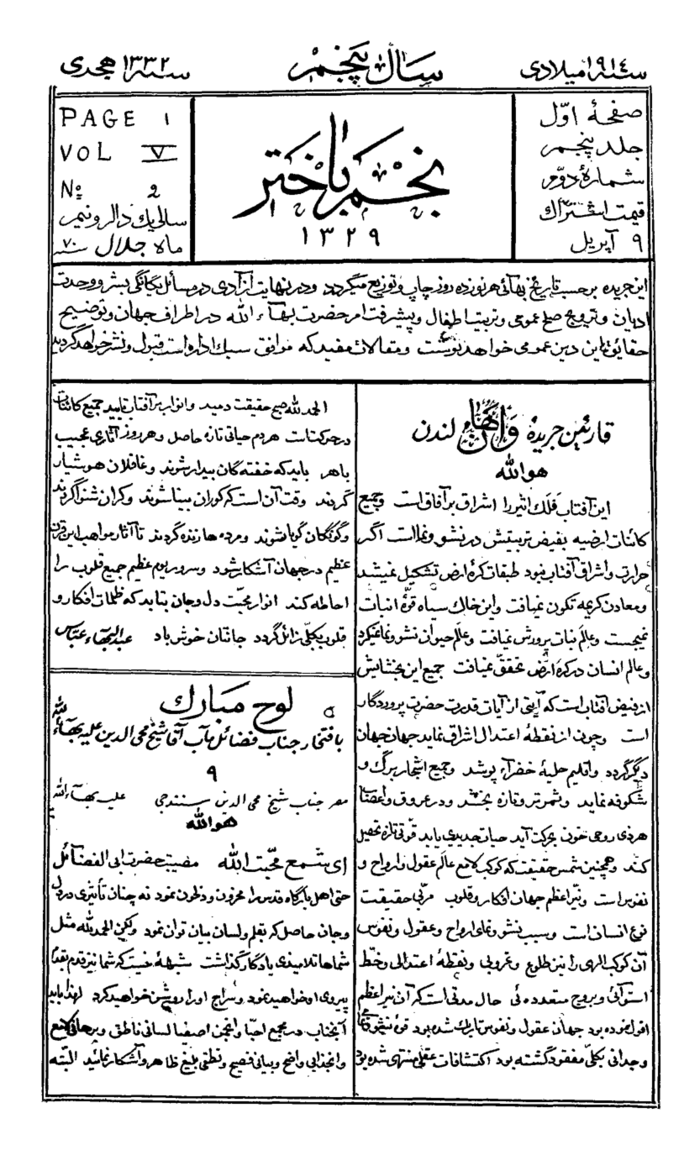 سنه ۱۹۱٤ میلادی
سال پنجم
سنه ۱۳۳۲ هجری
صفحهٔ اوّل
جلد پنجم
شمارهٔ دوّم
قیمت اشتراک
۹ آپریل
نجم باختر
۱۳۲۹
PAGE 1
VOL V
Nº 2
سالی یک دالر و نیم
ماه جلال سنه ۷۰
این جریده بر حسب تاریخ بهائی هر نوزده روز چاپ و توزیع میگردد و در نهایت آزادی در مسائل یگانگی بشر و وحدت
ادیان و ترویج صلح عمومی و تربیت اطفال و پیشرفت امر حضرت بهآء الله در اطراف جهان و توضیح
حقایق این دین عمومی خواهد نوشت و مقالات مفیده که موافق سبک اداره است قبول و نشر خواهد گردید
قارئین جریدهٔ لندن
هو الله
این آفتاب فلک اثیر را اشراق بر آفاق است و جمیع
کائنات ارضیه بفیض تربیتش در نشو و نما است اگر
حرارت و اشراق آفتاب نبود طبقات کرهٔ ارض تشکیل نمیشد
و معادن کریمه تکون نمییافت و این خاک سیاه قوّهٔ انبات
نمیجست و عالم نبات پرورش نمییافت و عالم حیوان نشو و نما نمیکرد
و عالم انسان در کرهٔ ارض تحقق نمییافت جمیع این بخشایش
از فیض آفتاب است که آیتی از آیات قدرت حضرت پروردگار
است و چون از نقطهٔ اعتدال اشراق نماید جهان جهان
دیگر گردد و اقلیم حلیهٔ خضرآء پوشد و جمیع اشجار برگ و
شکوفه نماید و ثمر تر و تازه بخشد و در عروق و اعضآء
هر ذی روحی خون بحرکت آید حیات جدیدی یابد قوّتی تازه تحصیل
کند و همچنین شمس حقیقت که کوکب لامع عالم عقول و ارواح و
نفوس است و نیّر اعظم جهان افکار و قلوب مربّی حقیقت
نوع انسان است و سبب نشو و نمای ارواح و عقول و نفوس
آن کوکب الهی را نیز طلوع و غروبی و نقطهٔ اعتدالی و خطّ
استوائی و بروج متعدده ئی حال مدتی است که آن نیّر اعظم
افول نموده بود جهان عقول و نفوس تاریک شده بود قوهٔ نشو و نما
وجدانی بکلّی مفقود گشته بود اکتشافات عقلی منتهی شده بود
الحمد لله صبح حقیقت دمید و انوار بر آفتاب تابید جمیع کائنات
در حرکت است هر دم حیاتی تازه حاصل و هر روز آثاری عجیب
باهر باید که خفته گان بیدار شوند و غافلان هوشیار
گردند وقت آن است که کوران بینا شوند و کران شنوا گردند
و گنگان گویا شوند و مرده ها زنده گردند تا آثار مواهب این قرن
عظیم در جهان آشکار شود و سرور یوم عظیم جمیع قلوب را
احاطه کند انوار محبّت دل و جان بتابد که ظلمات افکار و
قلوب بکلّی زائل گردد جانتان خوش باد عبد البهاء عباس
لوح مبارک
بافتخار جناب فضائل مآب آقا شیخ محی الدین علیه بهاء الله
۹
مصر جناب شیخ محی الدین سنندجی علیه بهآء الله
هو الله
ای شمع محبّت الله مصیبت حضرت ابی الفضائل
حتی اهل بارگاه قدس را محزون و دلخون نمود نه چنان تأثیری در دل
و جان حاصل که بقلم و لسان بیان توان نمود ولکن الحمد لله مثل
شماها تلامیذی یادگار گذاشت شبهه نیست که شما نیز قدم بقدم
پیروی او خواهید نمود و سراج او را روشن خواهید کرد لهذا باید
آنجناب در مجمع احبّا و انجمن اصفیا لسانی ناطق و برهانی لامع
و انجذابی واضح و بیانی فصیح و نطقی بلیغ ظاهر و آشکار نمائید البته